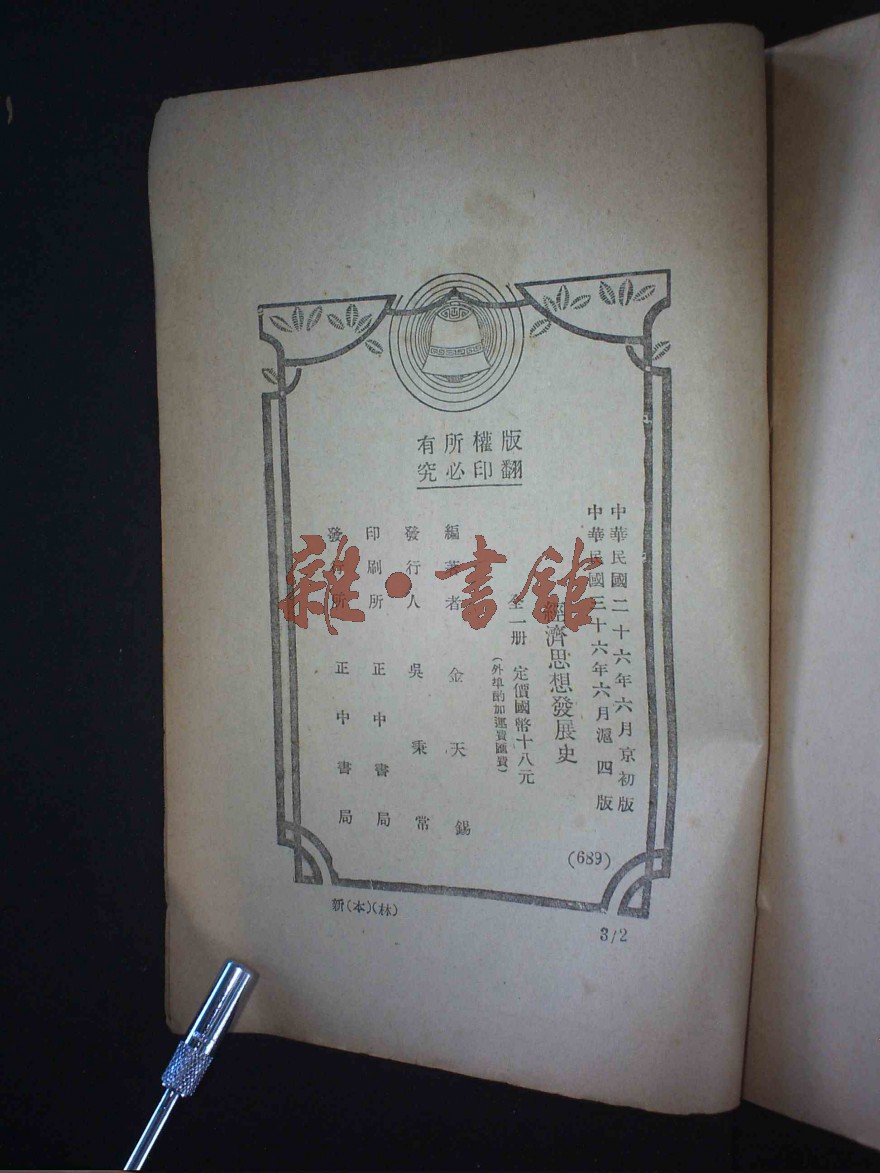 版權所有
翻印必究
中華民國二十六年六月京初版
中華民國三十六年六月滬四版
經濟思想發展史
全一册 定價國幣十八元
(外埠酌加運費匯費)
編著者 金天錫
發行人 吳秉常
印刷所 正中書局
發行所 正中書局
(689)
新(本)(林)
3/2
雜·書館